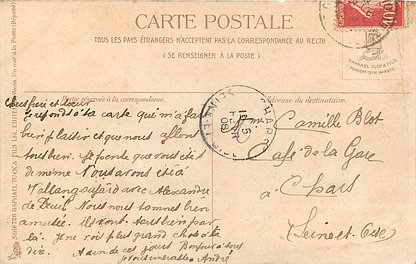 CARTE POSTALE
TOUS LES PAYS ÉTRANGERS N'ACCEPTENT PAS LA CORRESPONDANCE AU RECTO
(SE RENSEIGNER À LA POSTE)
RAPHAEL TUCK & FILS
Partie réservée à la correspondance.
Adresse du destinataire.
Cher frère et
repond à ta carte qui m'a fait
bien plaisir et que nous allons
tous bien. Je pense que vous êtes
de même Nous avons été à
Vallangoujard avec Alexandre
de Deuil Nous nous sommes bien
amusée. ils vont tous bien par
là. Je ne vois plus grand chose à te
dire. A un de ces jours Bonjour à tous
André
CHARS
SEINE-ET-OISE
15
08
Camille Blot
Café de la Gare
à Chars
Seine et Oise